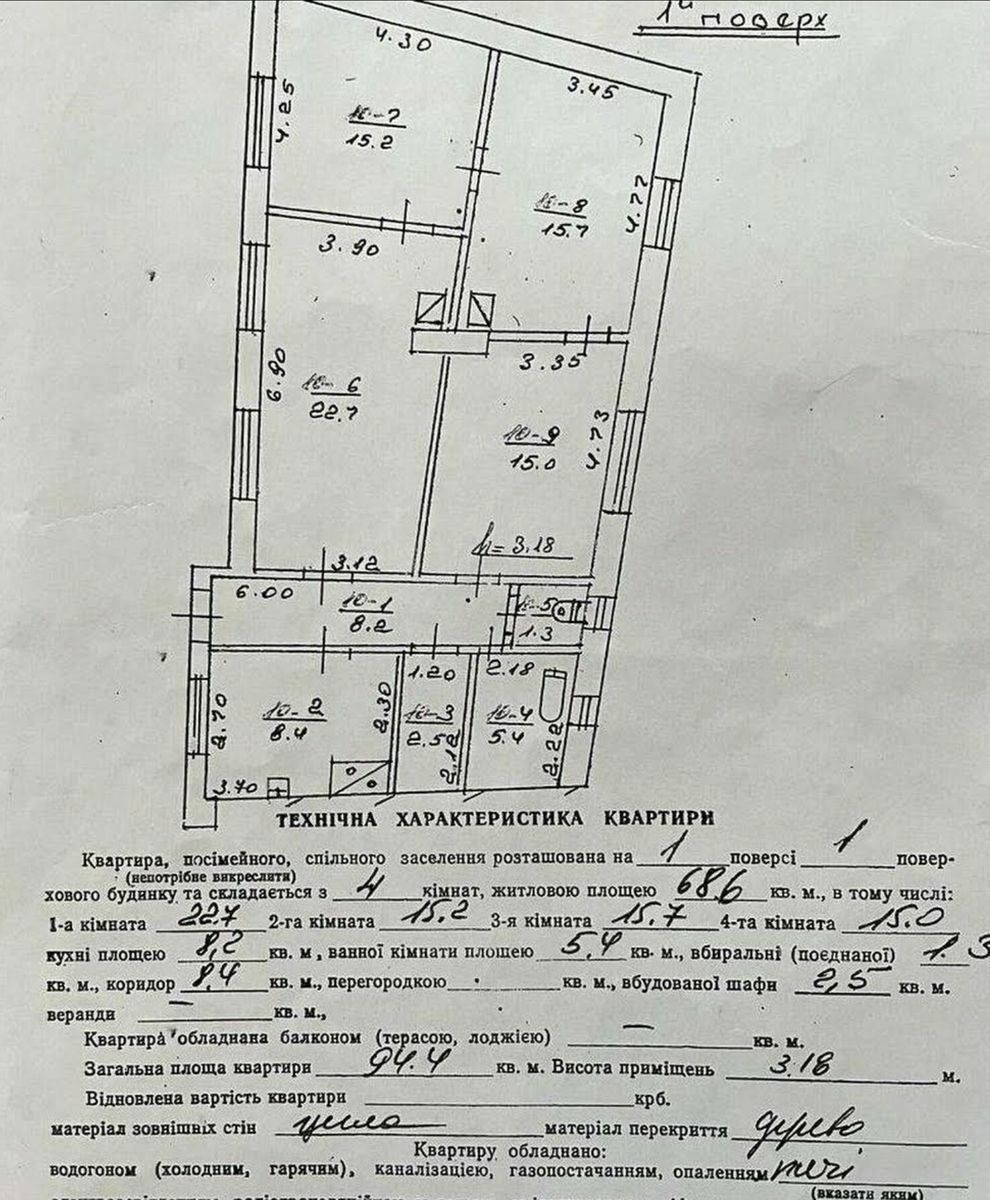 1й поверх
4.30
3.45
4.25
10-7
15.2
10-8
15.7
4.77
3.90
6.90
10-6
22.7
3.35
10-9
15.0
4.73
h = 3.18
3.12
6.00
10-1
8.2
10-5
1.3
1.20
2.18
2.70
10-2
8.4
2.30
10-3
2.52
2.12
10-4
5.4
2.22
3.70
ТЕХНІЧНА ХАРАКТЕРИСТИКА КВАРТИРИ
Квартира, посімейного, спільного заселення розташована на 1 поверсі 1 повер-
(непотрібне викреслити)
хового будинку та складається з 4 кімнат, житловою площею 68.6 кв. м., в тому числі:
1-а кімната 22.7 2-га кімната 15.2 3-я кімната 15.7 4-та кімната 15.0
кухні площею 8,2 кв. м, ванної кімнати площею 5,4 кв. м., вбиральні (поєднаної) 1.3
кв. м., коридор 8,4 кв. м., перегородкою кв. м., вбудованої шафи 2,5 кв. м.
веранди — кв. м.,
Квартира обладнана балконом (терасою, лоджією) — кв. м.
Загальна площа квартири 94.4 кв. м. Висота приміщень 3.18 м.
Відновлена вартість квартири крб.
матеріал зовнішніх стін цегла матеріал перекриття дерево
Квартиру обладнано:
водогоном (холодним, гарячим), каналізацією, газопостачанням, опаленням печі
(вказати яким)